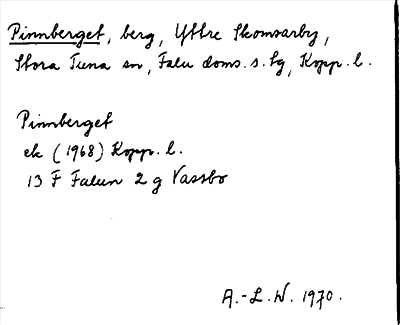 Pinnberget, berg, Yttre Skomsarby,
Stora Tuna sn, Falu doms. s. tg, Kopp. l.
Pinnberget
ek (1968) Kopp. l.
13 F Falun 2 g Vassbo
A.-L.W. 1970.